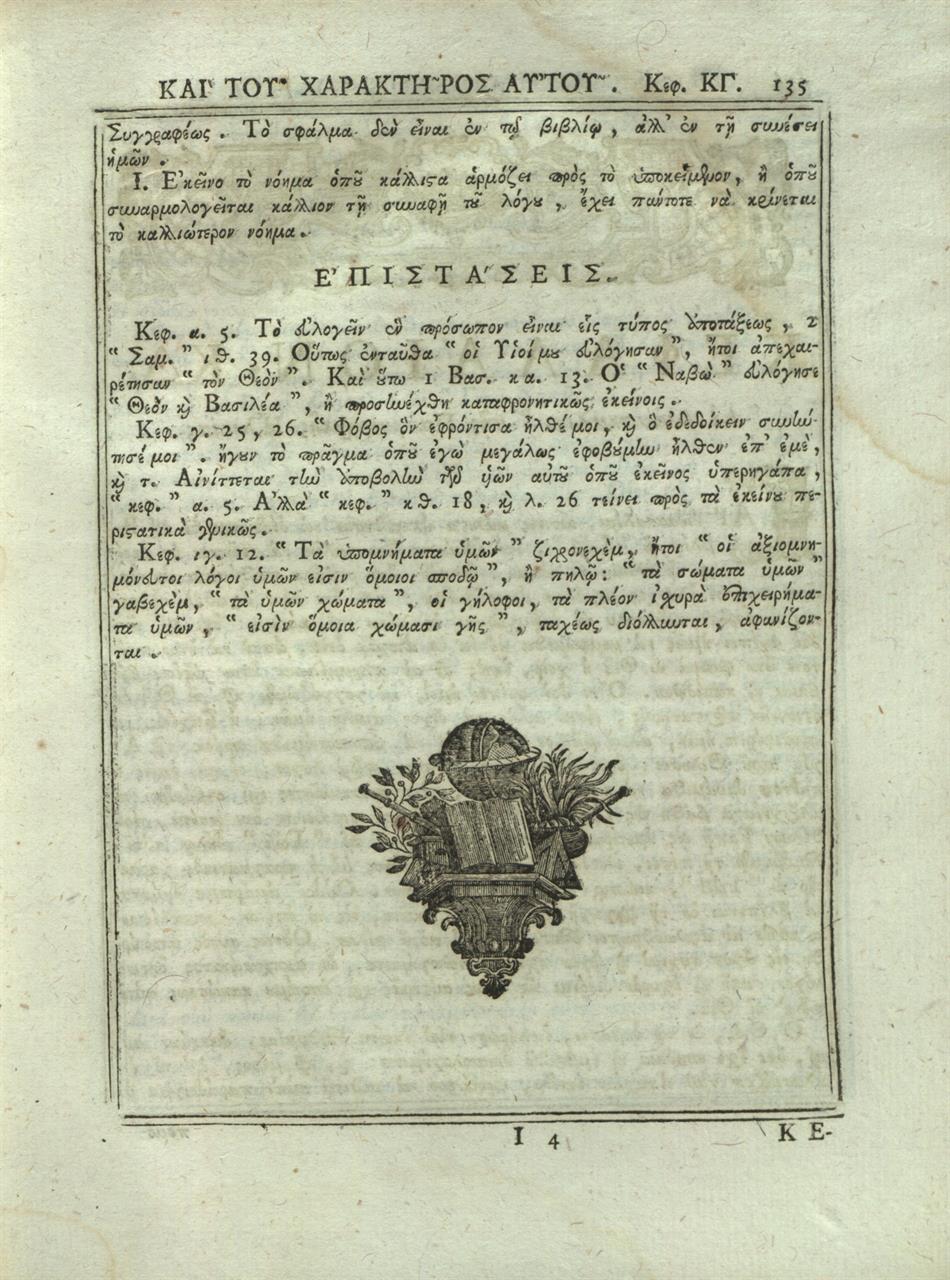 ΚΑΙ' ΤΟΥ͂ ΧΑΡΑΚΤΗ͂ΡΟΣ ΑΥ'ΤΟΥ͂. Κεφ. ΚΓ. 135
Συγγραφέως. Τὸ σφάλμα δὲν εἶναι ἐν τῷ βιβλίῳ, ἀλλ' ἐν τῇ συνέσει
ἡμῶν.
Ι. Ἐκεῖνο τὸ νόημα ὁποῦ κάλλιστα ἁρμόζει πρὸς τὸ ὑποκείμενον, ἢ ὁποῦ
συναρμολογεῖται κάλλιον τῇ συναφῇ τοῦ λόγου, ἔχει πάντοτε νὰ κρίνεται
τὸ καλλιώτερον νόημα.
Ε'ΠΙΣΤΑ'ΣΕΙΣ.
Κεφ. α. 5. Τὸ εὐλογεῖν ἐν πρόσωπον εἶναι εἷς τύπος ὑποτάξεως, 2
" Σαμ. " ιθ. 39. Οὕτως ἐνταῦθα " οἱ Υἱοί μου εὐλόγησαν ", ἤτοι ἀπεχαι-
ρέτησαν " τὸν Θεόν ". Καὶ οὕτω 1 Βασ. κα. 13. Ὁ " Ναβὼ " εὐλόγησε
" Θεὸν καὶ Βασιλέα ", ἢ προσηνέχθη καταφρονητικῶς ἐκείνοις.
Κεφ. γ. 25, 26. " Φόβος ὃν ἐφρόντισα ἦλθέ μοι, καὶ ὃ ἐδεδοίκειν συνήν-
τησέ μοι ". ἤγουν τὸ πρᾶγμα ὁποῦ ἐγὼ μεγάλως ἐφοβούμην ἦλθεν ἐπ' ἐμὲ,
καὶ τ. Αἰνίττεται τὴν ὑποβολὴν τῶν υἱῶν αὐτοῦ ὁποῦ ἐκεῖνος ὑπερηγάπα,
" κεφ. " α. 5. Ἀλλὰ " κεφ. " κθ. 18, καὶ λ. 26 τείνει πρὸς τὰ ἐκείνου πε-
ριστατικὰ γενικῶς.
Κεφ. ιγ. 12. " Τὰ ὑπομνήματα ὑμῶν " ζιχρονεχὲμ, ἤτοι " οἱ ἀξιομνη-
μόνευτοι λόγοι ὑμῶν εἰσιν ὅμοιοι σποδῷ ", ἢ πηλῷ: " τὰ σώματα ὑμῶν "
γαβεχὲμ, " τὰ ὑμῶν χώματα ", οἱ γήλοφοι, τὰ πλέον ἰσχυρὰ ἐπιχειρήμα-
τα ὑμῶν, " εἰσὶν ὅμοια χώμασι γῆς ", ταχέως διόλλυνται, ἀφανίζον-
ται.
I 4 Κ Ε-